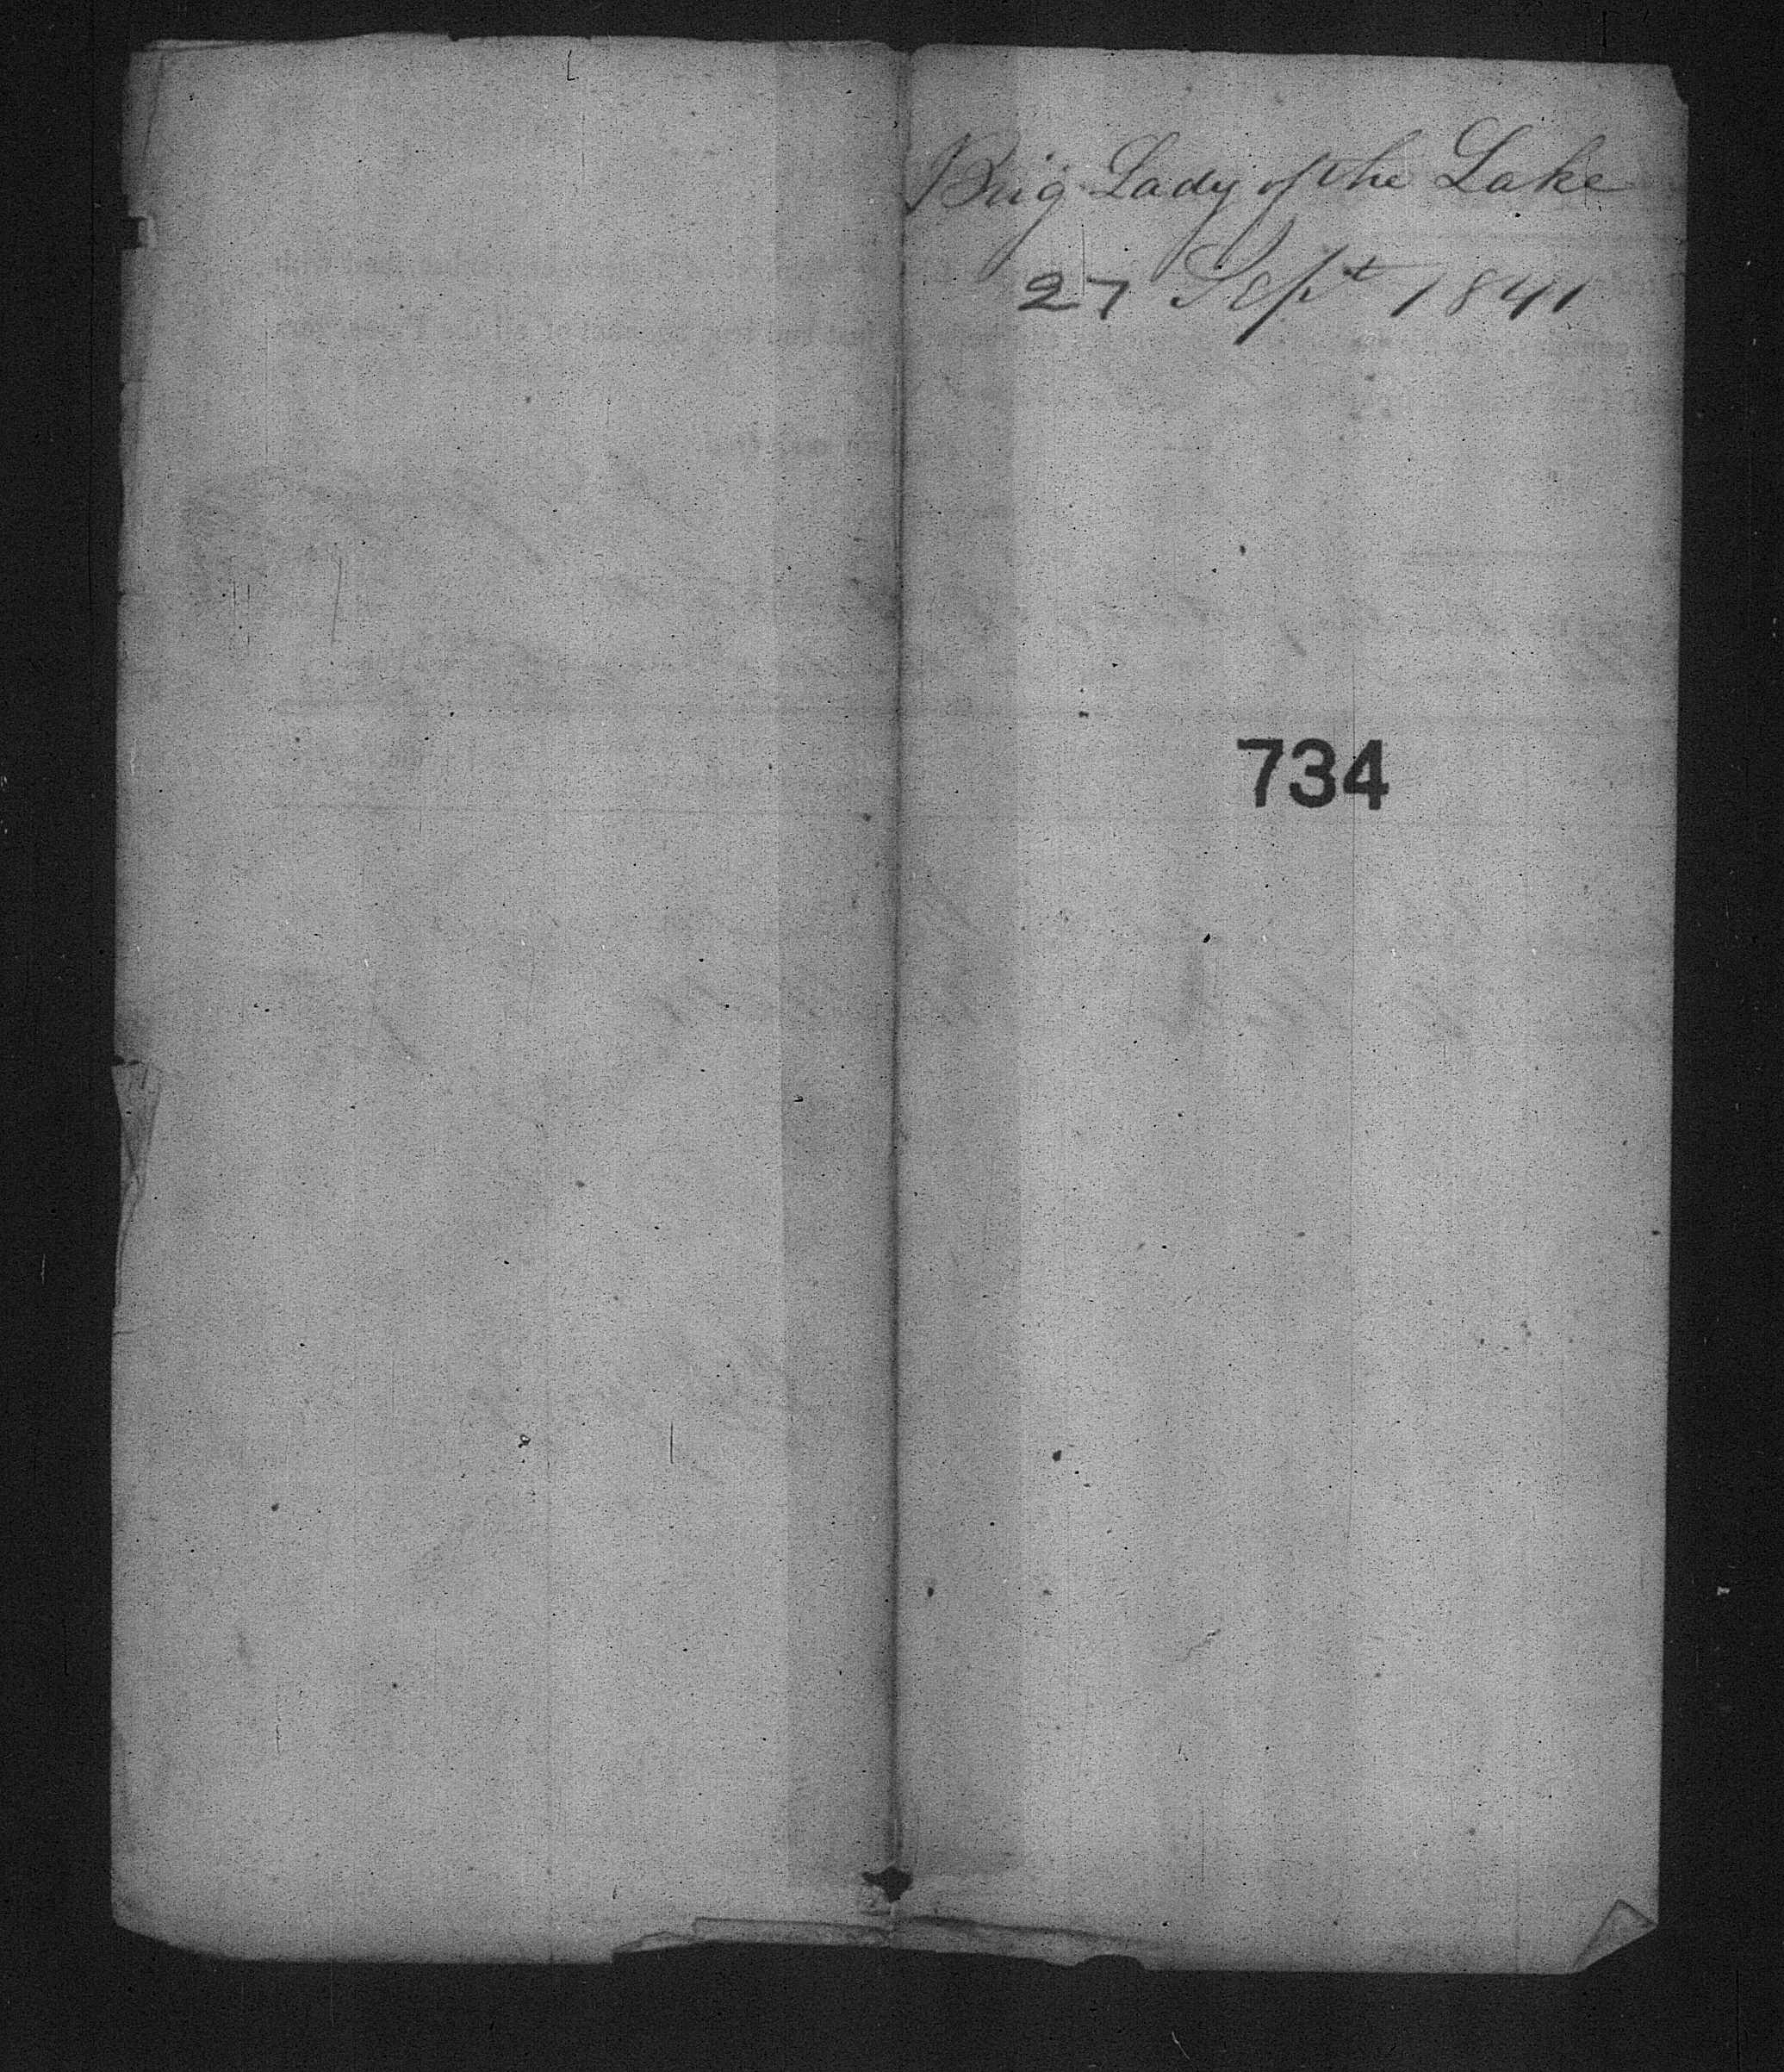 Brig Lady of the Lake
27 Sept 1841
734